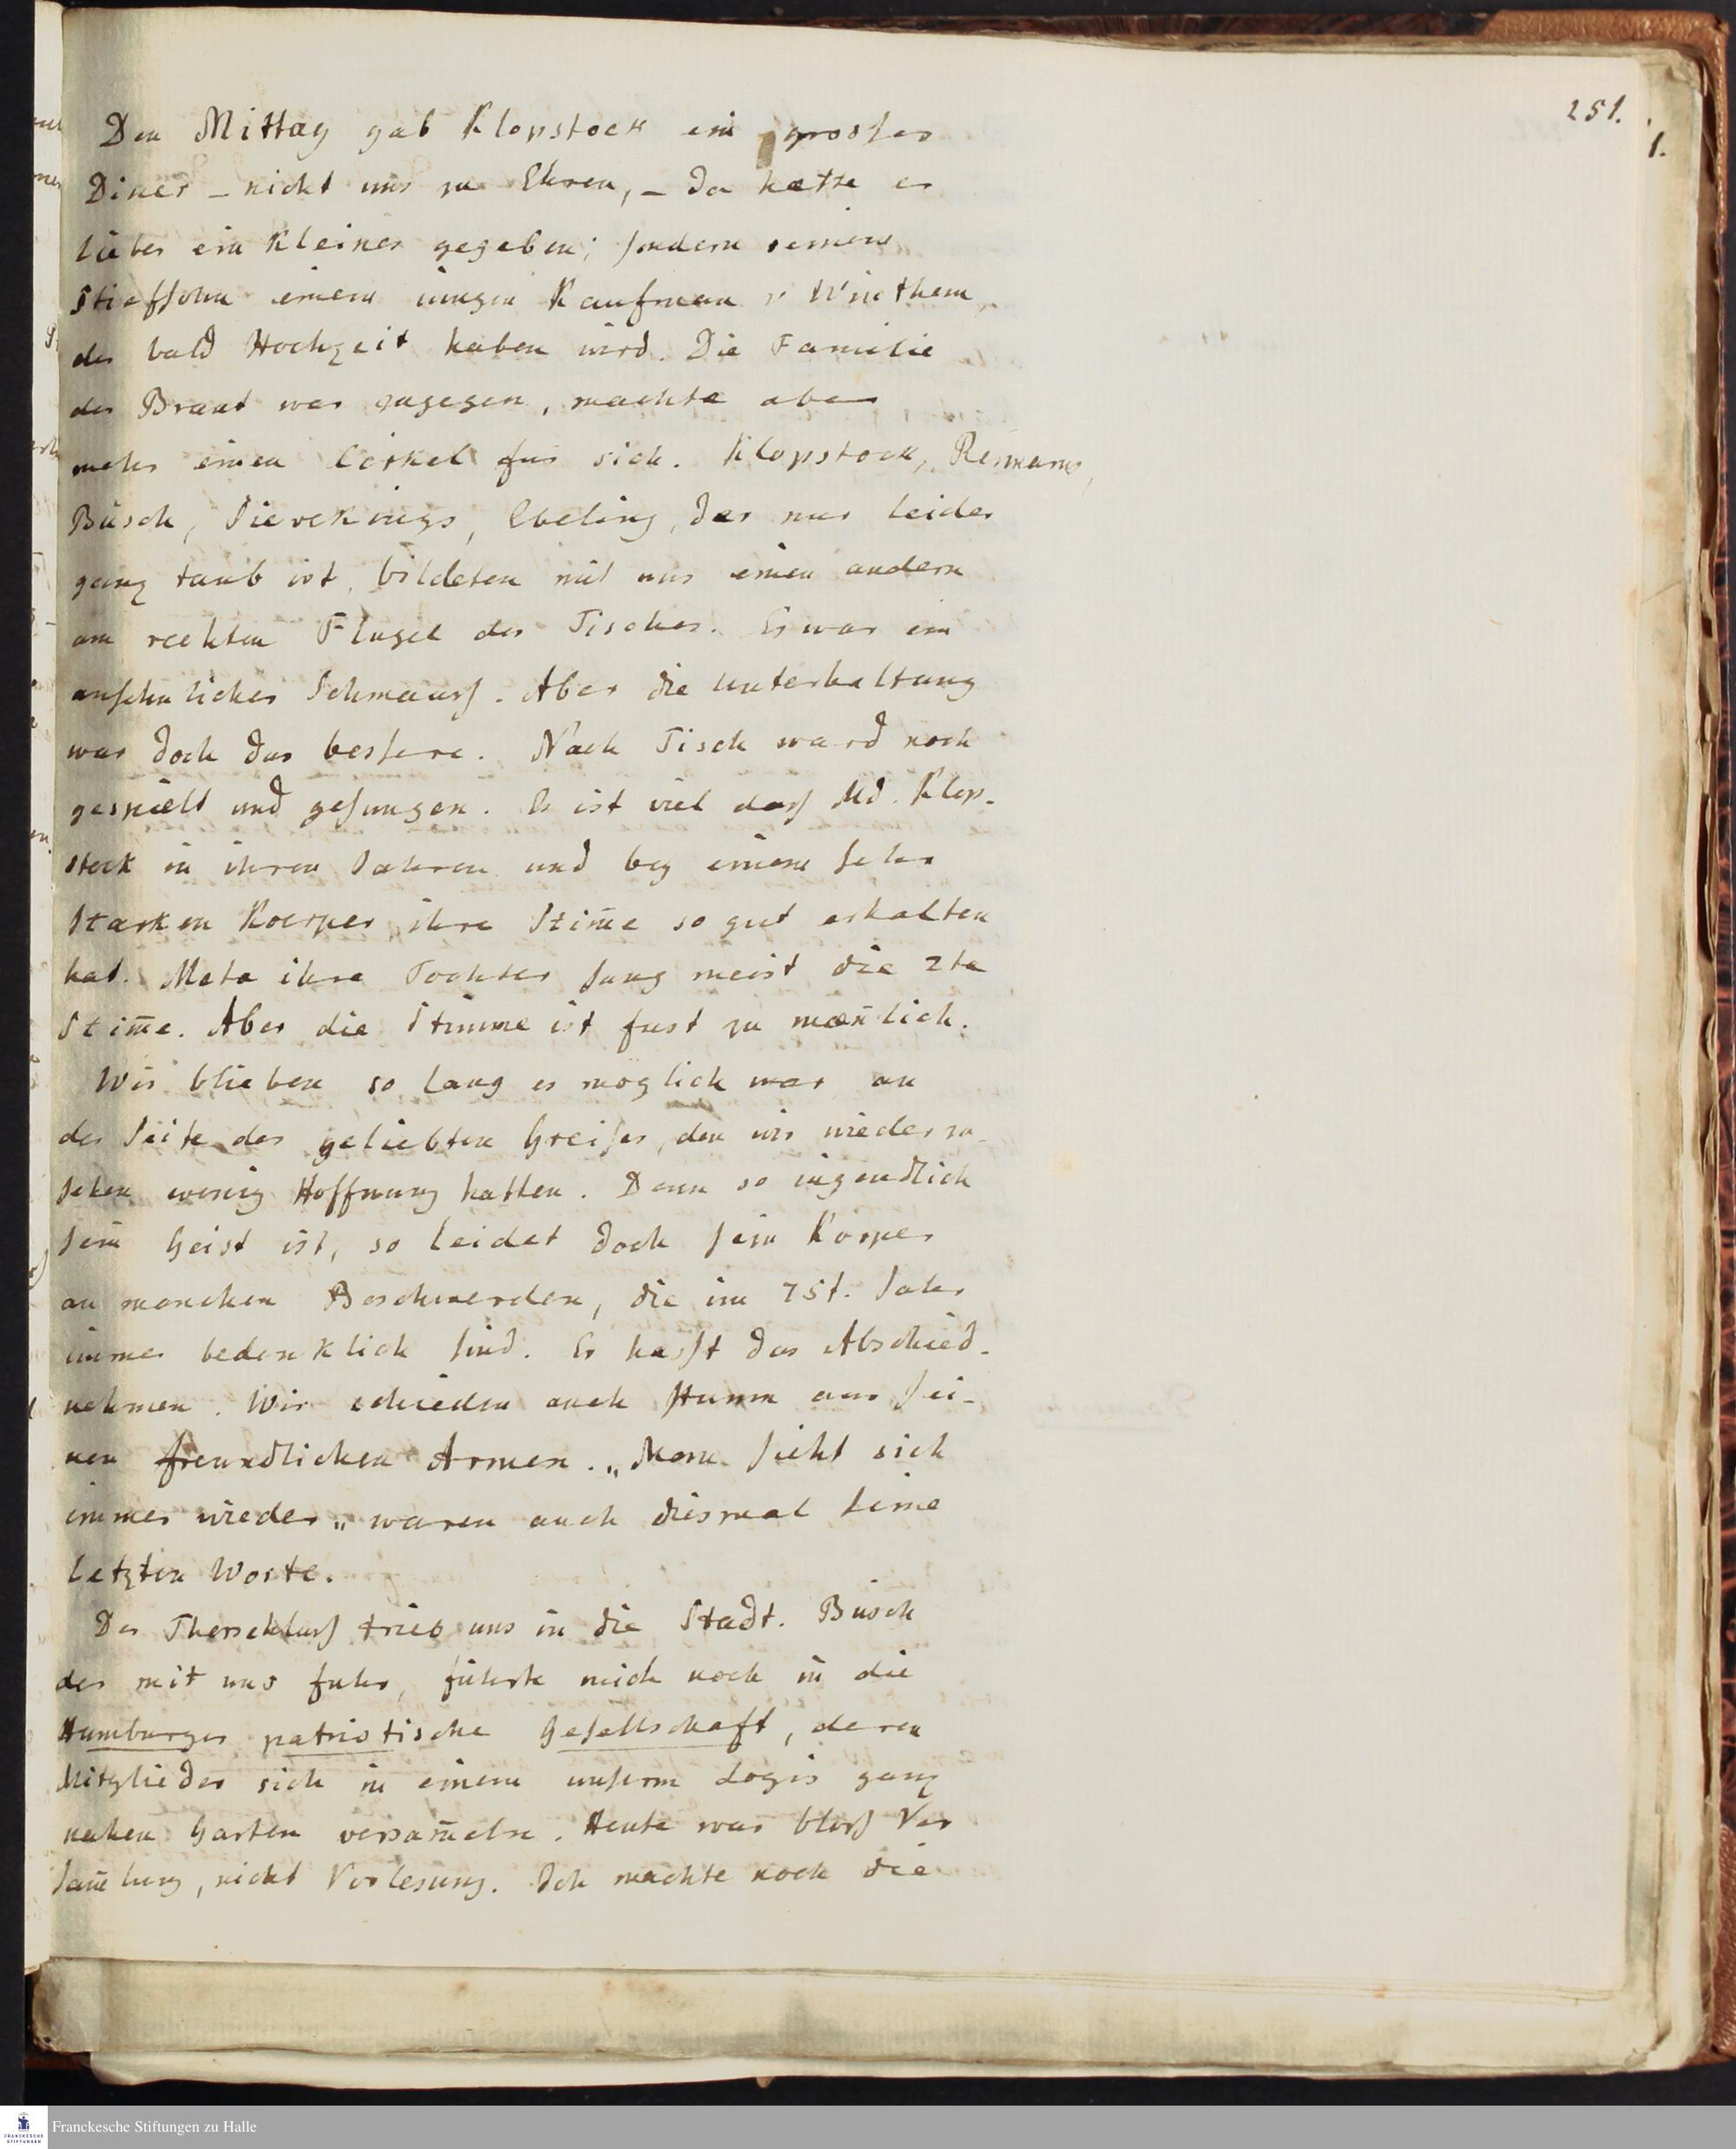 251.
1.
Den Mittag gab Klopstock ein grosses
Diner – nicht uns zu Ehren, – da hätte er
lieber ein kleines gegeben; sondern seinem
Stiefsohn einem iungen Kaufman v Winthem,
der bald Hochzeit haben wird. Die Familie
der Braut war zugegen, machte aber
mehr einen Cirkel für sich. Klopstock, Reimarus,
Büsch, Sievekings, Ebeling, der nur leider
ganz taub ist, bildeten mit uns einen andern
am rechten Flügel des Tisches. Es war ein
ansehnlicher Schmauss. Aber die Unterhaltung
war doch das bessere. Nach Tisch ward noch
gespielt und gesungen. Es ist viel dass Md. Klop-
stock in ihren Jahren und bey einem sehr
starken Koerper ihre Stim̄e so gut erhalten
hat. Meta ihre Tochter sang meist die 2te
Stim̄e. Aber die Stimme ist fast zu mæn̄lich.
Wir blieben so lang es möglich war an
der Seite des geliebten Greises, den wir wieder zu
sehen wenig Hoffnung hatten. Denn so iugendlich
sein Geist ist, so leidet doch sein Körper
an manchen Beschwerden, die im 75t. Jahr
immer bedenklich sind. Er hasst das Abschied-
nehmen. Wir schieden auch stumm aus sei-
nen freundlichen Armen. „Man sieht sich
immer wieder„ waren auch diesmal seine
letzten Worte.
Der Thorschluss trieb uns in die Stadt. Büsch
der mit uns fuhr, führte mich noch in die
Hamburger patriotische Gesellschaft, deren
Mitglieder sich in einem unserm Logis ganz
nahen Garten versam̄eln. Heute war bloss Ver
sam̄lung, nicht Vorlesung. Ich machte noch die
Franckesche Stiftungen zu Halle
FRANCKESCHE
STIFTUNGEN